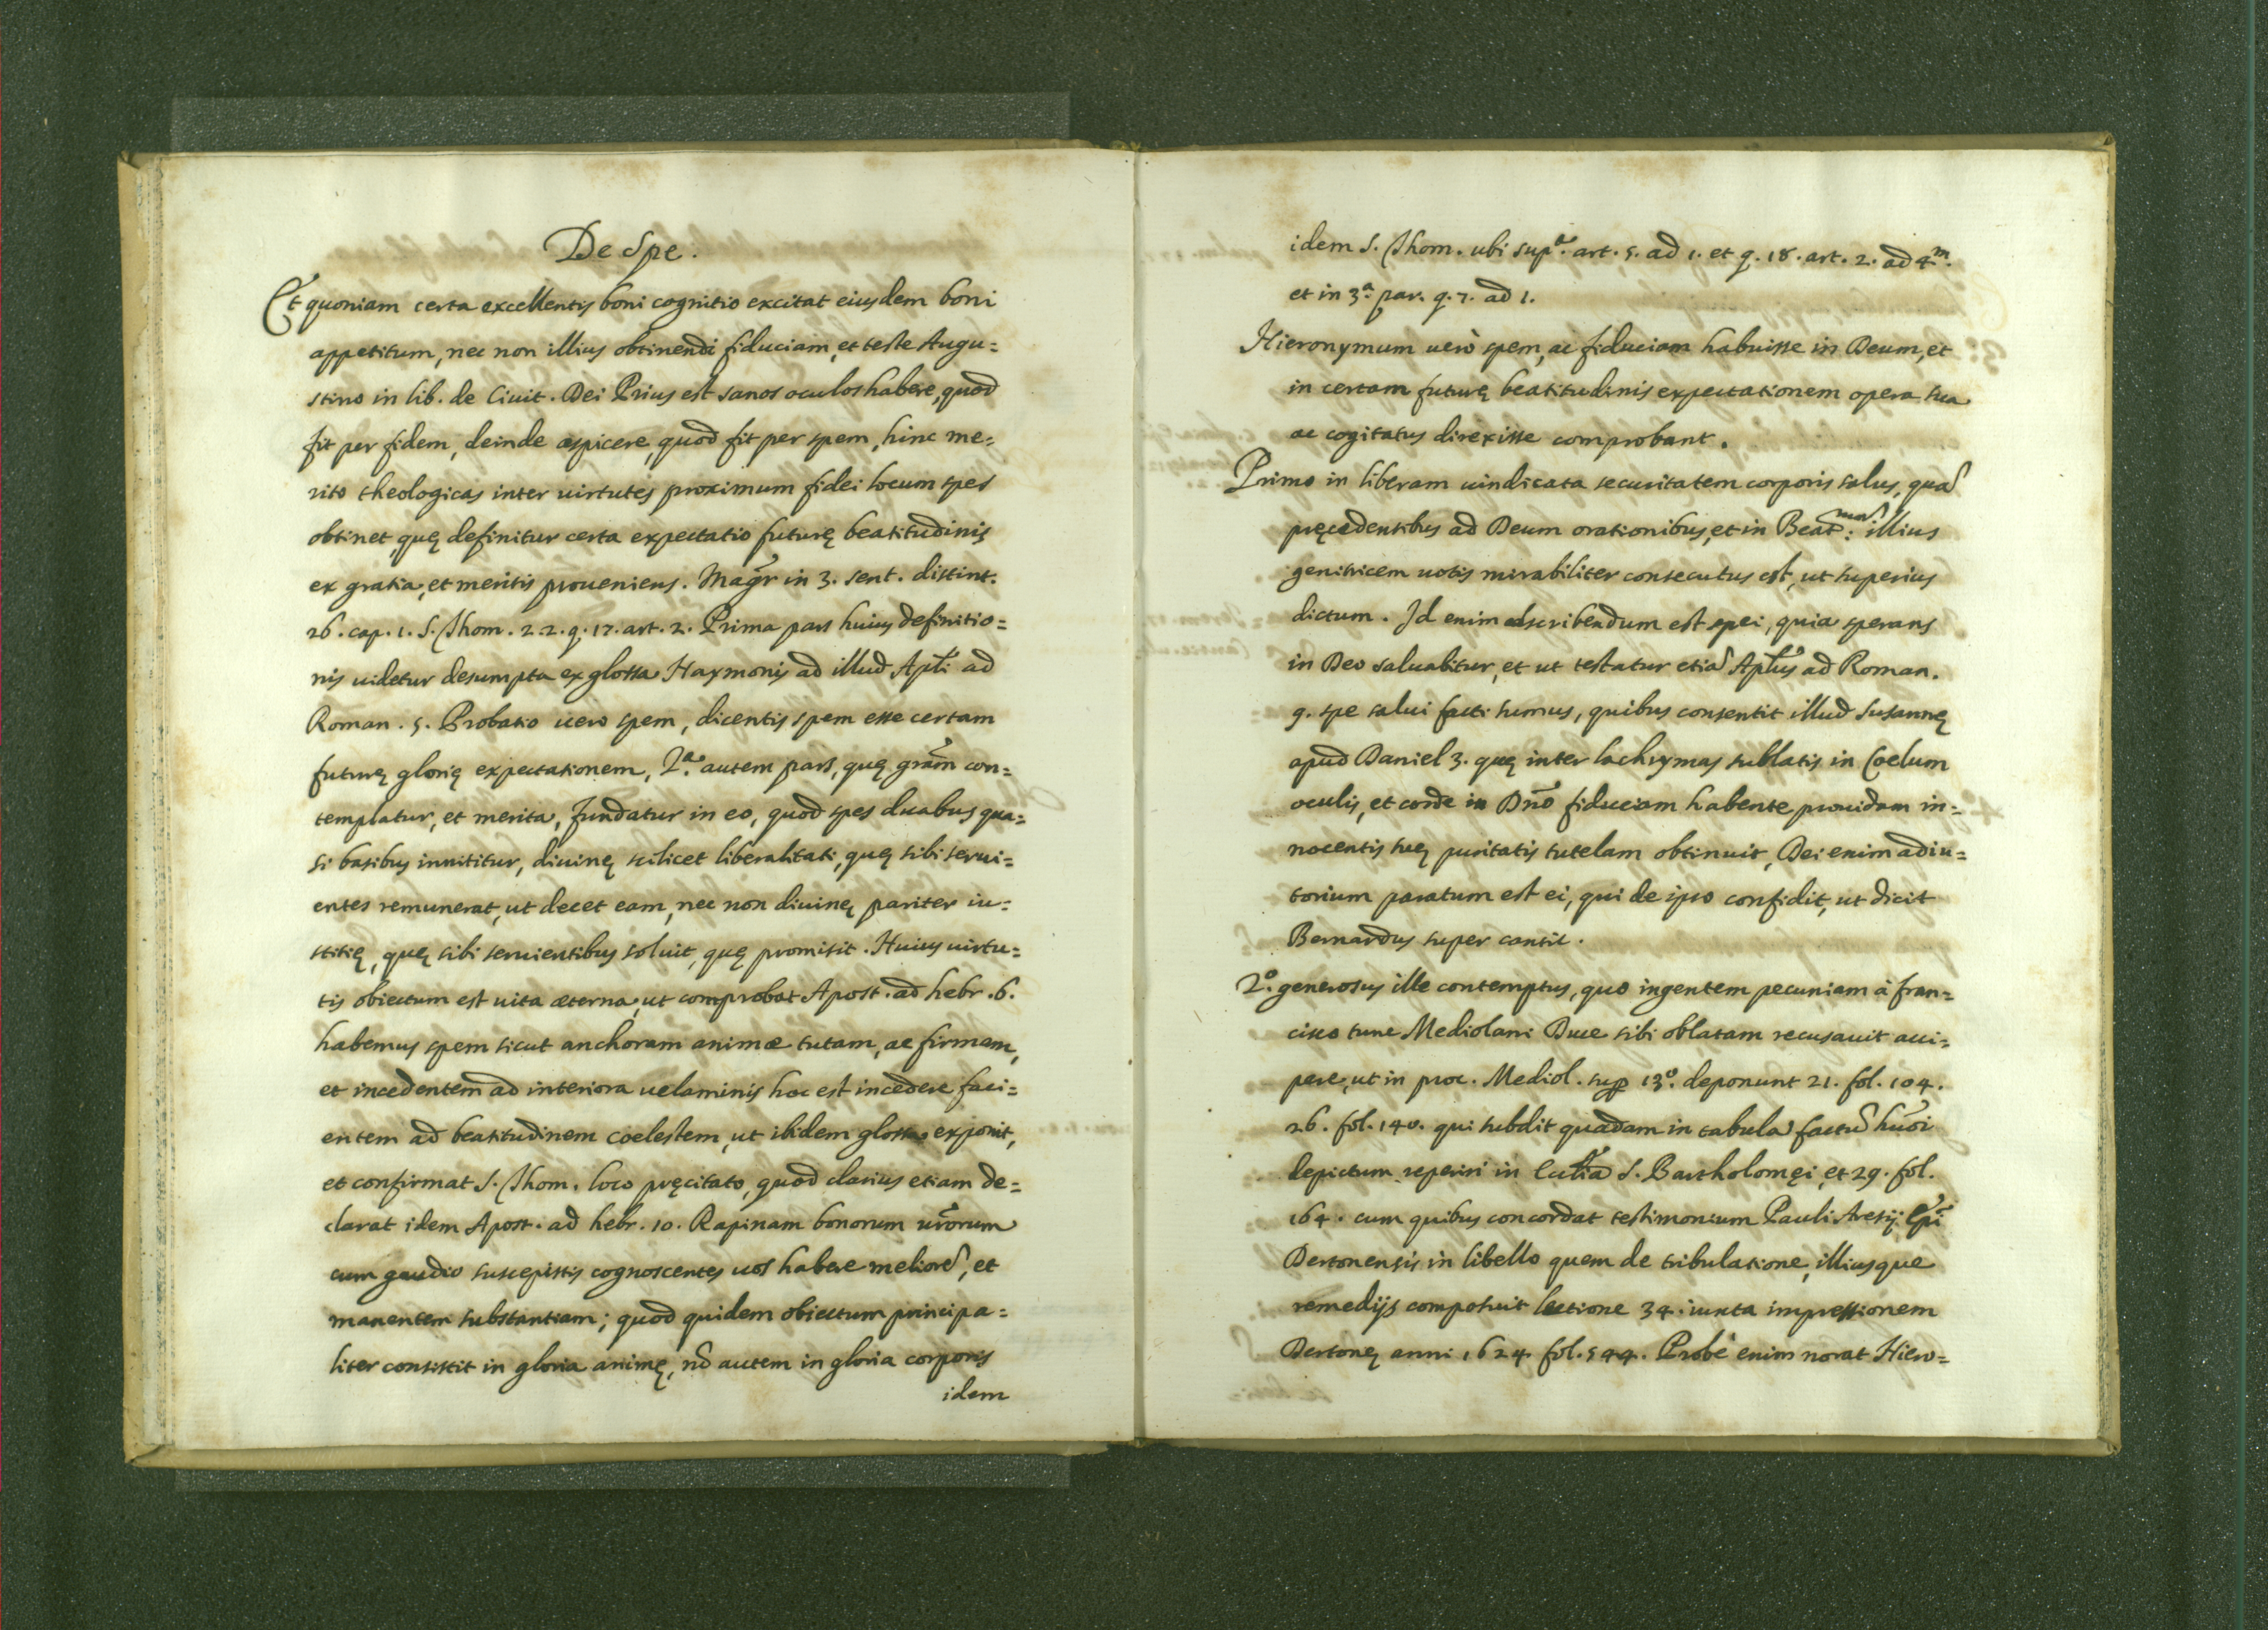 De Spe.
Et quoniam certa excellentis boni cognitio excitat eiusdem boni
appetitum, nec non illius obtinendi fiduciam, et teste Augu=
stino in lib. de Ciuit. Dei Prius est sanos oculos habere, quod
fit per fidem, deinde aspicere, quod fit per spem, hinc me=
rito theologicas inter uirtutes proximum fidei locum spes
obtinet, quę definitur certa expectatio futurę beatitudinis
ex gratia, et meritis proueniens. Magr̃ in 3. sent. distint.
26. cap. 1. S. Thom. 2.2. q. 17. art. 2. Prima pars huius definitio=
nis uidetur desumpta ex glossa Haymonis ad illud Apl̃i ad
Roman. 5. Probatio uero spem, dicentis spem esse certam
futurę glorię expectationem, 2.ª autem pars, quę gram̃ con=
templatur, et merita, fundatur in eo, quod spes duabus qua=
si basibus innititur, diuinę scilicet liberalitati, quę sibi serui=
entes remunerat, ut decet eam, nec non diuinę pariter iu=
stitię, quę sibi seruientibus soluit, quę promisit. Huius uirtu=
tis obiectum est uita æterna, ut comprobat Apost. ad hebr. 6.
habemus spem sicut anchoram animæ tutam, ac firmam,
et incedentem ad interiora uelaminis hoc est incedere faci=
entem ad beatitudinem coelestem, ut ibidem glossa exponit,
et confirmat S. Thom. loco pręcitato, quod clarius etiam de=
clarat idem Apost. ad hebr. 10. Rapinam bonorum ur̃orum
cum gaudio suscepistis cognoscentes uos habere meliorẽ, et
manentem substantiam; quod quidem obiectum principa=
liter consistit in gloria animę, nõ autem in gloria corporis
idem
idem S. Thom. ubi sup.ª art. 5. ad 1. et q. 18. art. 2. ad 4.m
et in 3.ª par. q. 7. ad 1.
Hieronymum uerò spem, ac fiduciam habuisse in Deum, et
in certam futurę beatitudinis expectationem opera sua
ac cogitatus direxisse comprobant.
Primo in liberam uindicata securitatem corporis salus, quã
pręcedentibus ad Deum orationibus, et in Beat.mã illius
genitricem uotis mirabiliter consecutus est, ut superius
dictum. Id enim adscribendum est spei, quia sperans
in Deo saluabitur, et ut testatur etiã Apl̃us ad Roman.
9. spe salui facti sumus, quibus consentit illud Susannę
apud Daniel 3. quę inter lachrymas sublatis in Coelum
oculis, et corde in Dño fiduciam habente prouidam in=
nocentis suę puritatis tutelam obtinuit, Dei enim adiu=
torium paratum est ei, qui de ipso confidit, ut dicit
Bernardus super cantic.
2.º generosus ille contemptus, quo ingentem pecuniam à fran=
cisco tunc Mediolani Duce sibi oblatam recusauit acci=
pere, ut in proc. Mediol. sup 13.º deponunt 21. fol. 104.
26. fol. 140. qui subdit quadam in tabula factũ hũoi
depictum reperiri in Eccl̃ia S. Bartholomęi, et 29. fol.
164. cum quibus concordat testimonium Pauli Aresij Ep̃i
Dertonensis in libello quem de tribulatione, illiusque
remedijs composuit lectione 34. iuxta impressionem
Dertonę anni 1624 fol. 544. Probè enim norat Hiero=